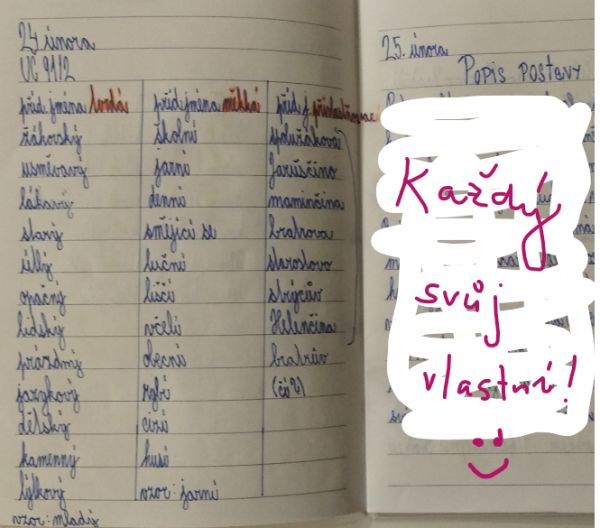 24. února
UČ 91/2
příd. jména tvrdá příd. jména měkká příd. j. přivlastňovac
žákovský školní spolužákova
usměvavý jarní Jaruščino
lákavý denní maminčina
slavý smějící se bratrova
luční starostovo
opačný liščí strýcův
lidský včelí Helenčina
prázdný obecní bratrův
jazykový rybí (čò 2)
dětský cizí
kamenný husí
lýkový vzor: jarní
vzor: mladý
25. února
Popis postavy
Každý
svůj
vlastní!